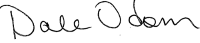 Dale Odom